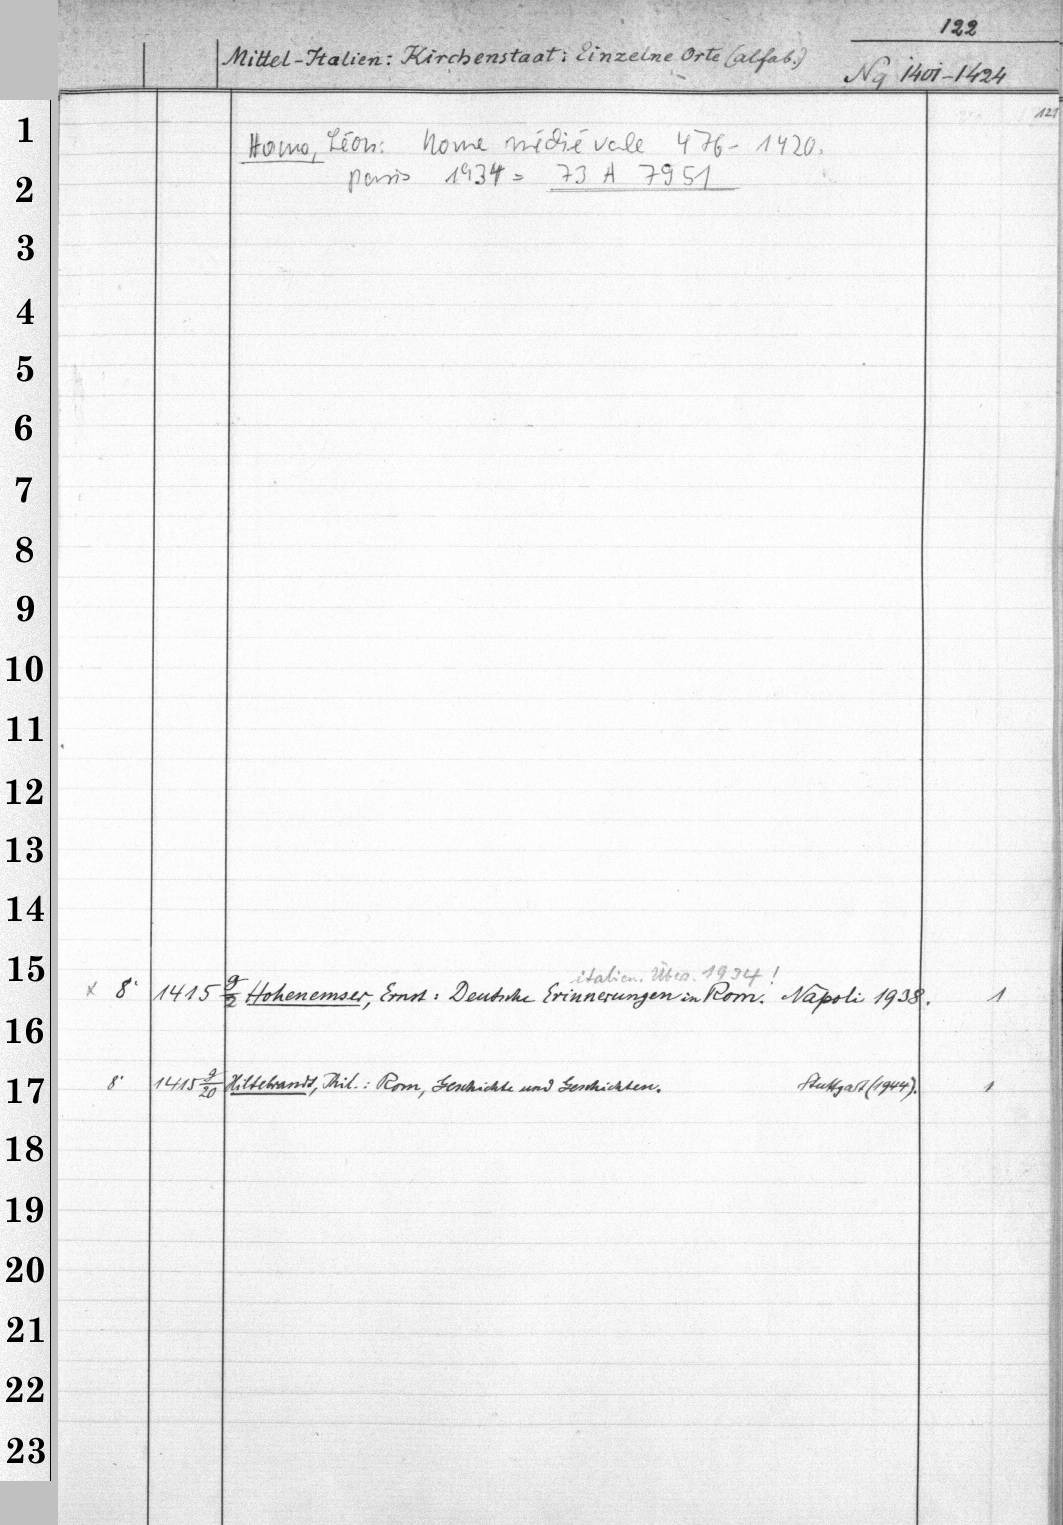 122
Mittel-Italien: Kirchenstaat: Einzelne Orte (alfab.)
Nq 1401-1424
121
1
Homo, Léon: Rome médiévale 476-1420.
2
Paris 1934 = 73 A 7951
3
4
5
6
7
8
9
10
11
12
13
14
15
italien. Übers. 1934!
x 8° 1415 g/2 Hohenemser, Ernst: Deutsche Erinnerungen in Rom. Napoli 1938. 1
16
17
8° 1415 g/20 Hiltebrandt, Phil.: Rom, Geschichte und Geschichten. Stuttgart (1944). 1
18
19
20
21
22
23